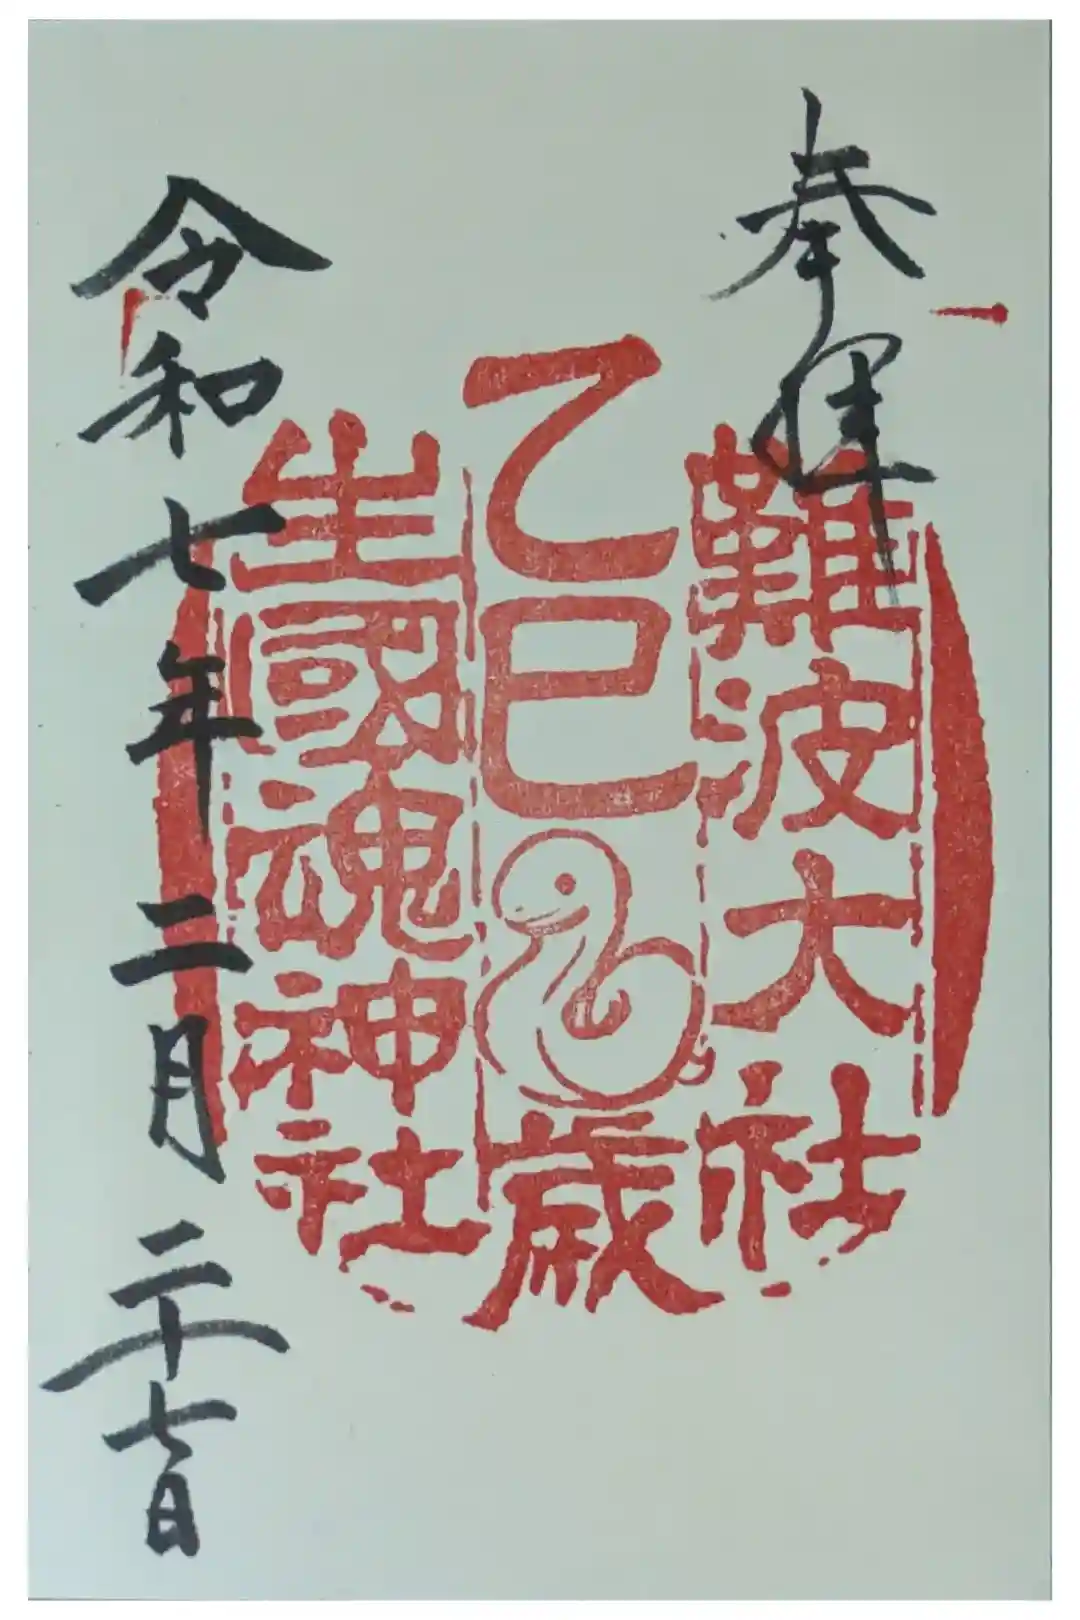 奉拝
難波大社
乙巳
歳
生國魂神社
令和七年二月二十七日